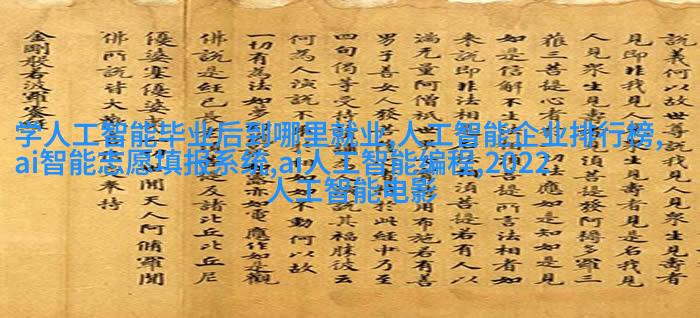 說義何以故世尊說我見人見衆生見壽者
見即非我見人見壽者是名我見
人見衆生見須菩提發阿耨多羅三
菩提心者法應如是知如是見
如是信解不生須菩提所言法相者如
來說即非法相須菩提若有人以
滿无量阿僧祇用布施若有善
男子善女人於此經乃至
四句偈等受持說其福勝彼云
何為人演說不如不動何以故
一切有為法如亦如電應作如是觀
佛說是經已長及諸比丘比丘尼
優婆塞優婆間天人阿脩羅聞
佛所說皆大奉持
金剛般若波羅
学人工智能毕业后到哪里就业,人工智能企业排行榜,
ai智能志愿填报系统,ai人工智能编程,2022
人工智能电影